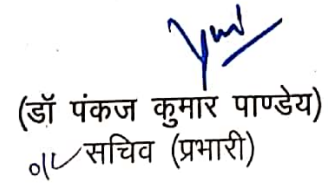 (डॉ पंकज कुमार पाण्डेय)
सचिव (प्रभारी)